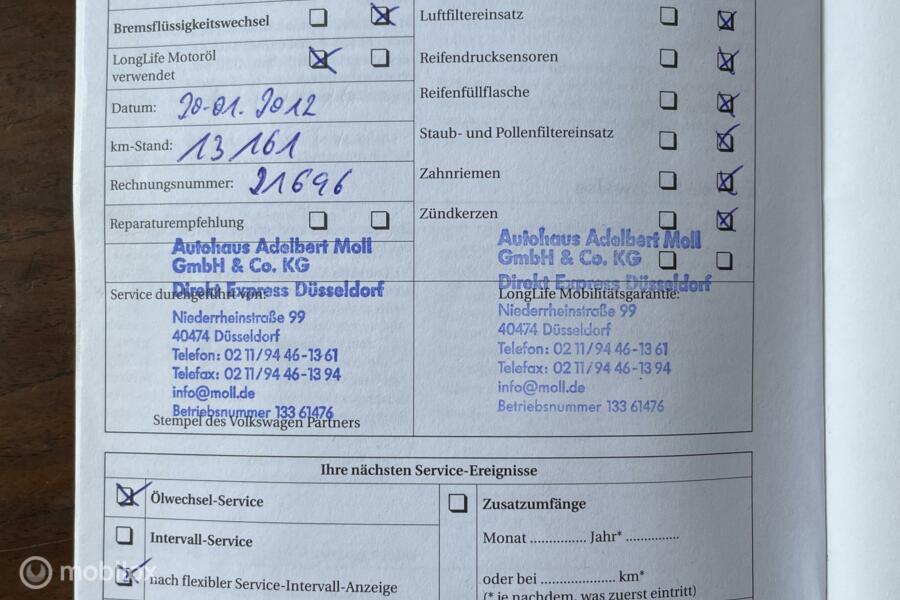 Bremsflüssigkeitswechsel
LongLife Motoröl
verwendet
Datum: 20-01. 2012
km-Stand: 13 161
Rechnungsnummer: 21696
Reparaturempfehlung
Autohaus Adelbert Moll
GmbH & Co. KG
Direkt Express Düsseldorf
Service durchgeführt von:
Niederrheinstraße 99
40474 Düsseldorf
Telefon: 02 11/94 46-13 61
Telefax: 02 11/94 46-13 94
info@moll.de
Betriebsnummer 133 61476
Stempel des Volkswagen Partners
Luftfiltereinsatz
Reifendrucksensoren
Reifenfüllflasche
Staub- und Pollenfiltereinsatz
Zahnriemen
Zündkerzen
Autohaus Adelbert Moll
GmbH & Co. KG
Direkt Express Düsseldorf
LongLife Mobilitätsgarantie:
Niederrheinstraße 99
40474 Düsseldorf
Telefon: 02 11/94 46-13 61
Telefax: 02 11/94 46-13 94
info@moll.de
Betriebsnummer 133 61476
Ihre nächsten Service-Ereignisse
Ölwechsel-Service
Intervall-Service
nach flexibler Service-Intervall-Anzeige
Zusatzumfänge
Monat .............. Jahr* ..............
oder bei ................... km*
(* je nachdem, was zuerst eintritt)